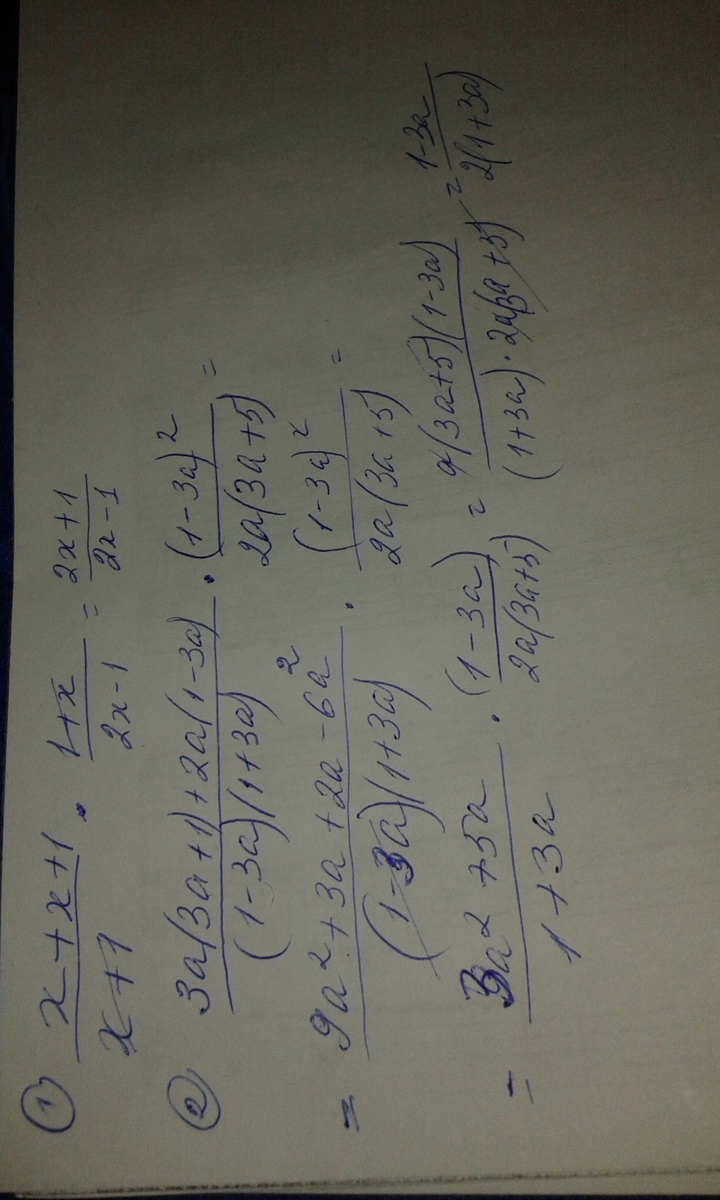 ① (x+x+1)/(x+1) · (1+x)/(2x-1) = (2x+1)/(2x-1)
② (3a(3a+1)+2a(1-3a))/((1-3a)(1+3a)) · (1-3a)²/(2a(3a+5)) =
= (9a²+3a+2a-6a²)/((1-3a)(1+3a)) · (1-3a)²/(2a(3a+5)) =
= (3a²+5a)/(1+3a) · (1-3a)/(2a(3a+5)) = (a(3a+5)(1-3a))/((1+3a)·2a(3a+5)) = (1-3a)/(2(1+3a))